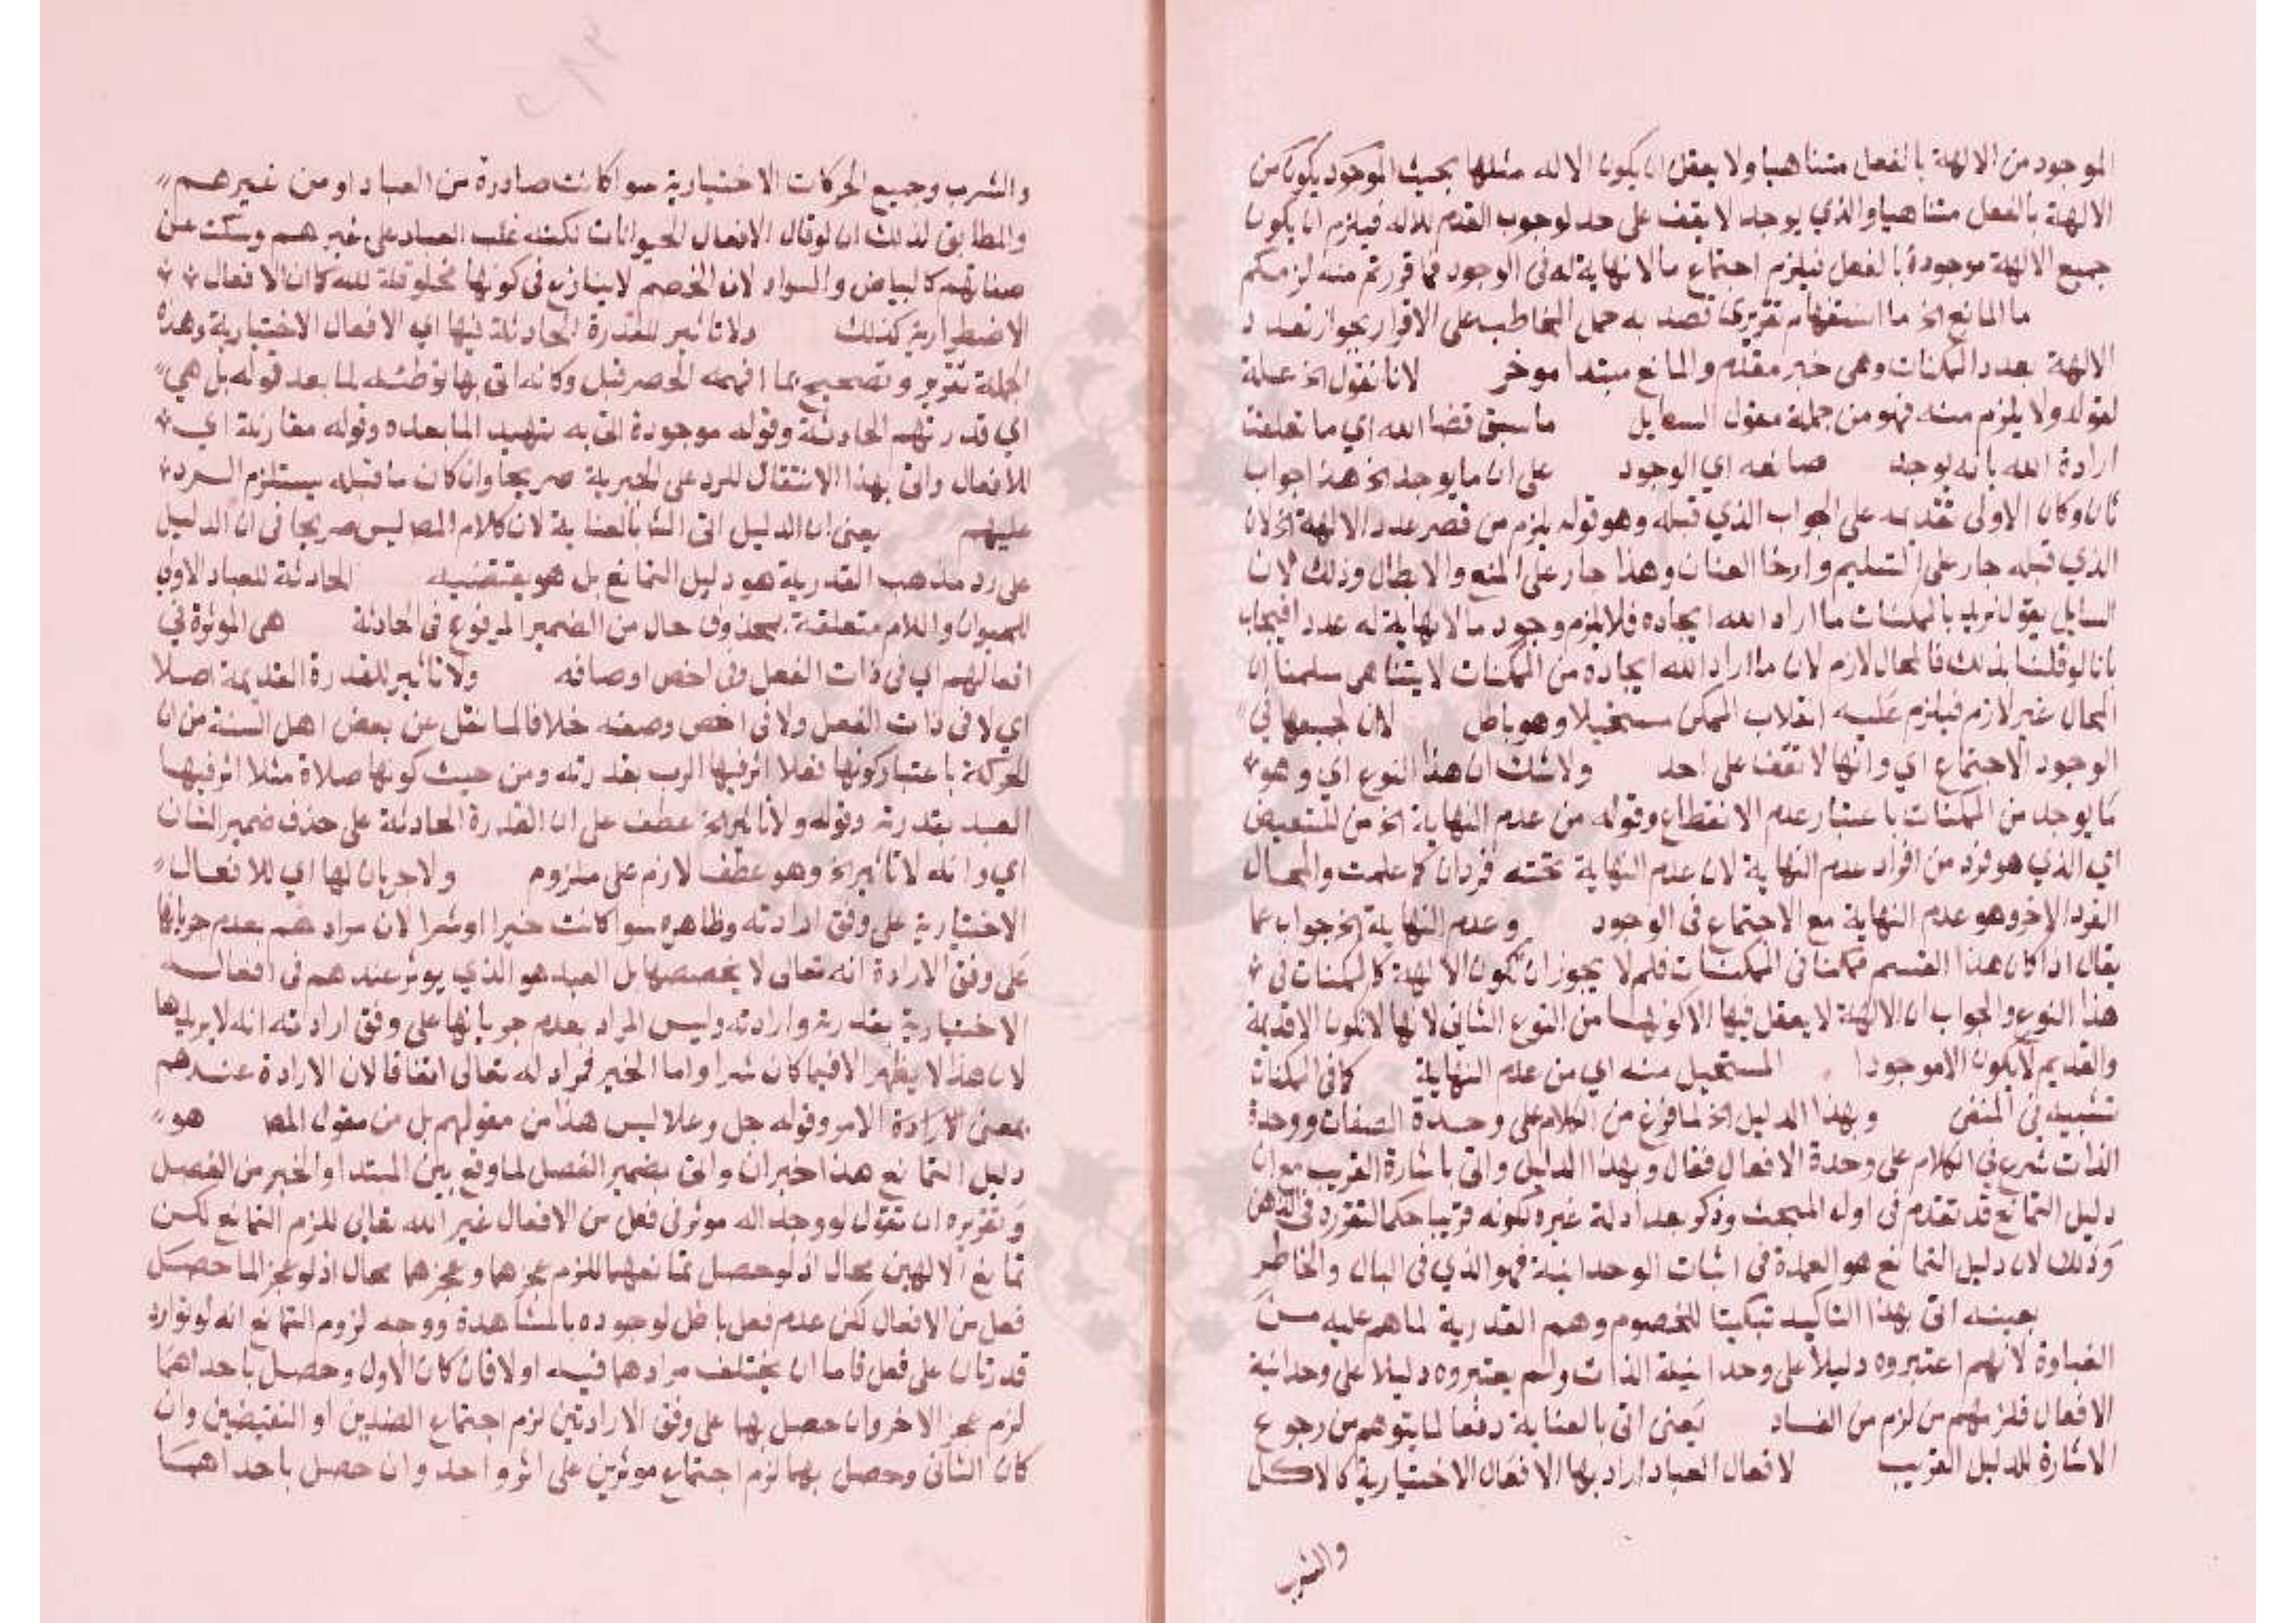 الموجود من الالهة بالفعل متناهيا ولا يعقل ان يكون الاله مثلها بحيث الموجود يكون من
الالهة بالفعل متناهيا والذي يوجد لا يقف على حد لوجوب القدم للاله فيلزم ان يكون
جميع الالهة موجودة بالفعل فيلزم اجتماع ما لا نهاية له في الوجود فما قررتم منه لزمكم
ما المانع الخ ما استفهام تقريري قصد به حمل المخاطب على الاقرار بجواز تعدد
الالهة بعدد الممكنات وهي خبر مقدم والمانع مبتدا موخر لانا نقول الخ علة
لقوله ولا يلزم منه فهو من جملة مقول السايل ما سبق قضا الله اي ما تعلقت
ارادة الله بانه يوجد صانعه اي الوجود على ان ما يوجد الخ هذا جواب
ثان وكان الاولى تقديمه على الجواب الذي قبله وهو قوله يلزم من قصر عدد الالهة الخ لان
الذي قبله جار على التسليم وارخا العنان وهذا جار على المنع والابطال وذلك لان
السايل يقول نريد بالممكنات ما اراد الله ايجاده فلا يلزم وجود ما لا نهاية له عددا فيجاب
بانا لو قلنا بذلك فالمحال لازم لان ما اراد الله ايجاده من الممكنات لا يتناهى سلمنا ان
المحال غير لازم فيلزم عليه انقلاب الممكن مستحيلا وهو باطل لان جميعها في
الوجود الاجتماع اي وانها لا تقف على احد ولا شك ان هذا النوع اي وهو
ما يوجد من الممكنات باعتبار عدم الانقطاع وقوله من عدم النهاية الخ من للتبعيض
اي الذي هو فرد من افراد عدم النهاية لان عدم النهاية تحته فردان كما علمت والمحال
الفرد الاخر وهو عدم النهاية مع الاجتماع في الوجود وعدم النهاية الخ جواب عما
يقال اذا كان هذا القسم ممكنا في الممكنات فلم لا يجوز ان تكون الالهة كالممكنات في
هذا النوع والجواب ان الالهة لا يعقل فيها الا كونها من النوع الثاني لانها لا تكون الا قديمة
والقديم لا يكون الا موجودا المستحيل منه اي من عدم النهاية كما في الممكنات
تشبيه في المنفى وبهذا الدليل الخ لما فرغ من الكلام على وحدة الصفات ووحدة
الذات شرع في الكلام على وحدة الافعال فقال وبهذا الدليل واتى باشارة القريب مع ان
دليل التمانع قد تقدم في اول المبحث وذكر بعد ادلة غيره لكونه قريبا حكما لتقرره في الذهن
وذلك لان دليل التمانع هو العمدة في اثبات الوحدانية فهو الذي في البال والخاطر
بعينه اتى بهذا التاكيد تبكيتا للخصوم وهم القدرية لما هم عليه من
الغباوة لانهم اعتبروه دليلا على وحدانية الذات ولم يعتبروه دليلا على وحدانية
الافعال فلزمهم من لزم من الفساد يعنى اتى بالعناية دفعا لما يتوهم من رجوع
الاشارة للدليل القريب لافعال العباد اراد بها الافعال الاختيارية كالاكل
والشرب
والشرب وجميع الحركات الاختيارية سوا كانت صادرة من العباد او من غيرهم
والمطابق لذلك ان لو قال الافعال الحيوانات لكنه غلب العباد على غيرهم وسكت عن
صفاتهم كالبياض والسواد لان الخصم لا ينازع في كونها مخلوقة لله كما ان الافعال
الاضطرارية كذلك ولا تاثير للقدرة الحادثة فيها اي الافعال الاختيارية وهذه
الجملة تقرير وتصحيح لما افهمه الحصر قبل وكانه اتى بها توطئة لما بعد قوله بل هي
اي قدرتهم الحادثة وقوله موجودة اتى به تمهيد لما بعده وقوله مقارنة اي
للافعال واتى بهذا الانتقال للرد على الجبرية صريحا وان كان ما قبله يستلزم الرد
عليهم يعنى ان الدليل اتى الشا بالعناية لان كلام المصا ليس صريحا في ان الدليل
على رد مذهب القدرية هو دليل التمانع بل هو يقتضيه الحادثة للعباد الاولى
للحيوان واللام متعلقة بمحذوف حال من الضمير المرفوع في الحادثة هي الموثرة في
افعالهم اي في ذات الفعل وفى اخص اوصافه ولا تاثير للقدرة القديمة اصلا
اي لا في ذات الفعل ولا في اخص وصفه خلافا لما نقل عن بعض اهل السنة من ان
الحركة باعتبار كونها فعلا اثر فيها الرب بقدرته ومن حيث كونها صلاة مثلا اثر فيها
العبد بقدرته وقوله ولا تاثير الخ عطف على ان القدرة الحادثة على حذف ضمير الشان
اي وانه لا تاثير الخ وهو عطف لازم على ملزوم ولا جريان لها اي للافعال
الاختيارية على وفق ارادته وظاهره سوا كانت خيرا او شرا لان مرادهم بعدم جريانها
على وفق الارادة انه تعالى لا يخصصها بل العبد هو الذي يوثر عندهم في افعاله
الاختيارية بقدرته وارادته وليس المراد بعدم جريانها على وفق ارادته انه لا يريدها
لان هذا لا يظهر الا فيما كان شرا واما الخير فمراد له تعالى اتفاقا لان الارادة عندهم
بمعنى الارادة الامر وقوله جل وعلا ليس هذا من مقولهم بل من مقول المصا هو
دليل التمانع هذا خبر ان واتى بضمير الفصل لما وقع بين المبتدا والخبر من الفصل
وتقريره ان تقول لو وجد اله موثر في فعل من الافعال غير الله تعالى للزم التمانع لكن
تمانع الالهين محال اذ لو حصل تمانعهما للزم عجزهما وعجزهما محال اذ لو عجز لما حصل
فعل من الافعال لكن عدم فعل باطل لوجوده بالمشاهدة ووجه لزوم التمانع انه لو توارد
قدرتان على فعل فاما ان يختلف مرادهما فيه او لا فان كان الاول وحصل باحداهما
لزم عجز الاخر وان حصل بهما على وفق الارادتين لزم اجتماع الضدين او النقيضين وان
كان الثانى وحصل بهما لزم اجتماع موثرين على اثر واحد وان حصل باحداهما